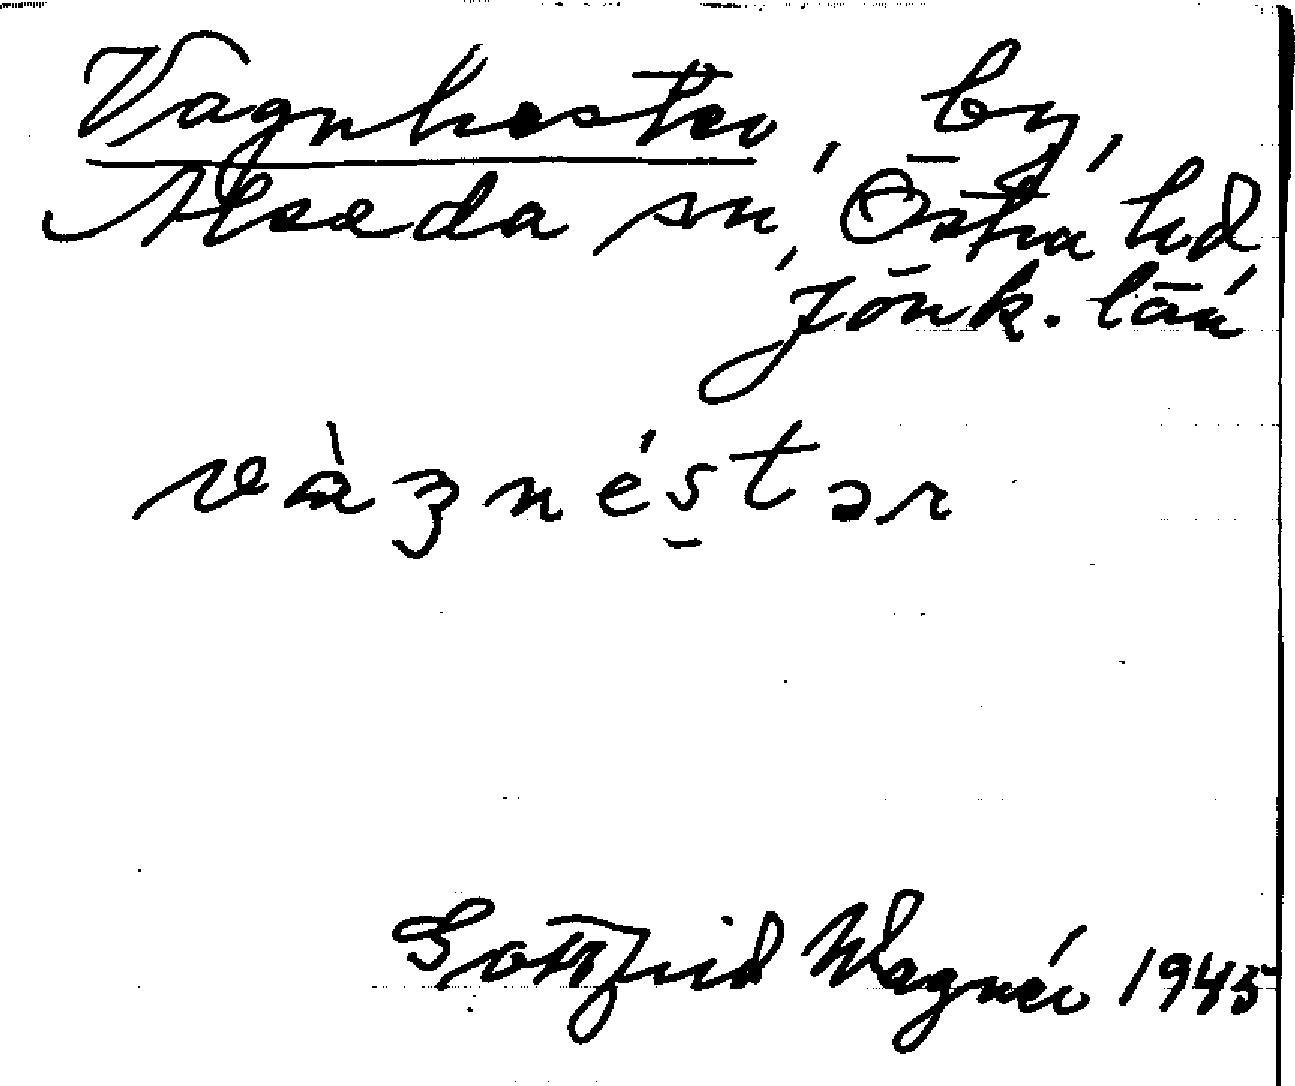 Vagnhester, by,
Alseda sn, Östra hd
Jönk. län
vàgnéstər
Gottfrid Wagnér 1945